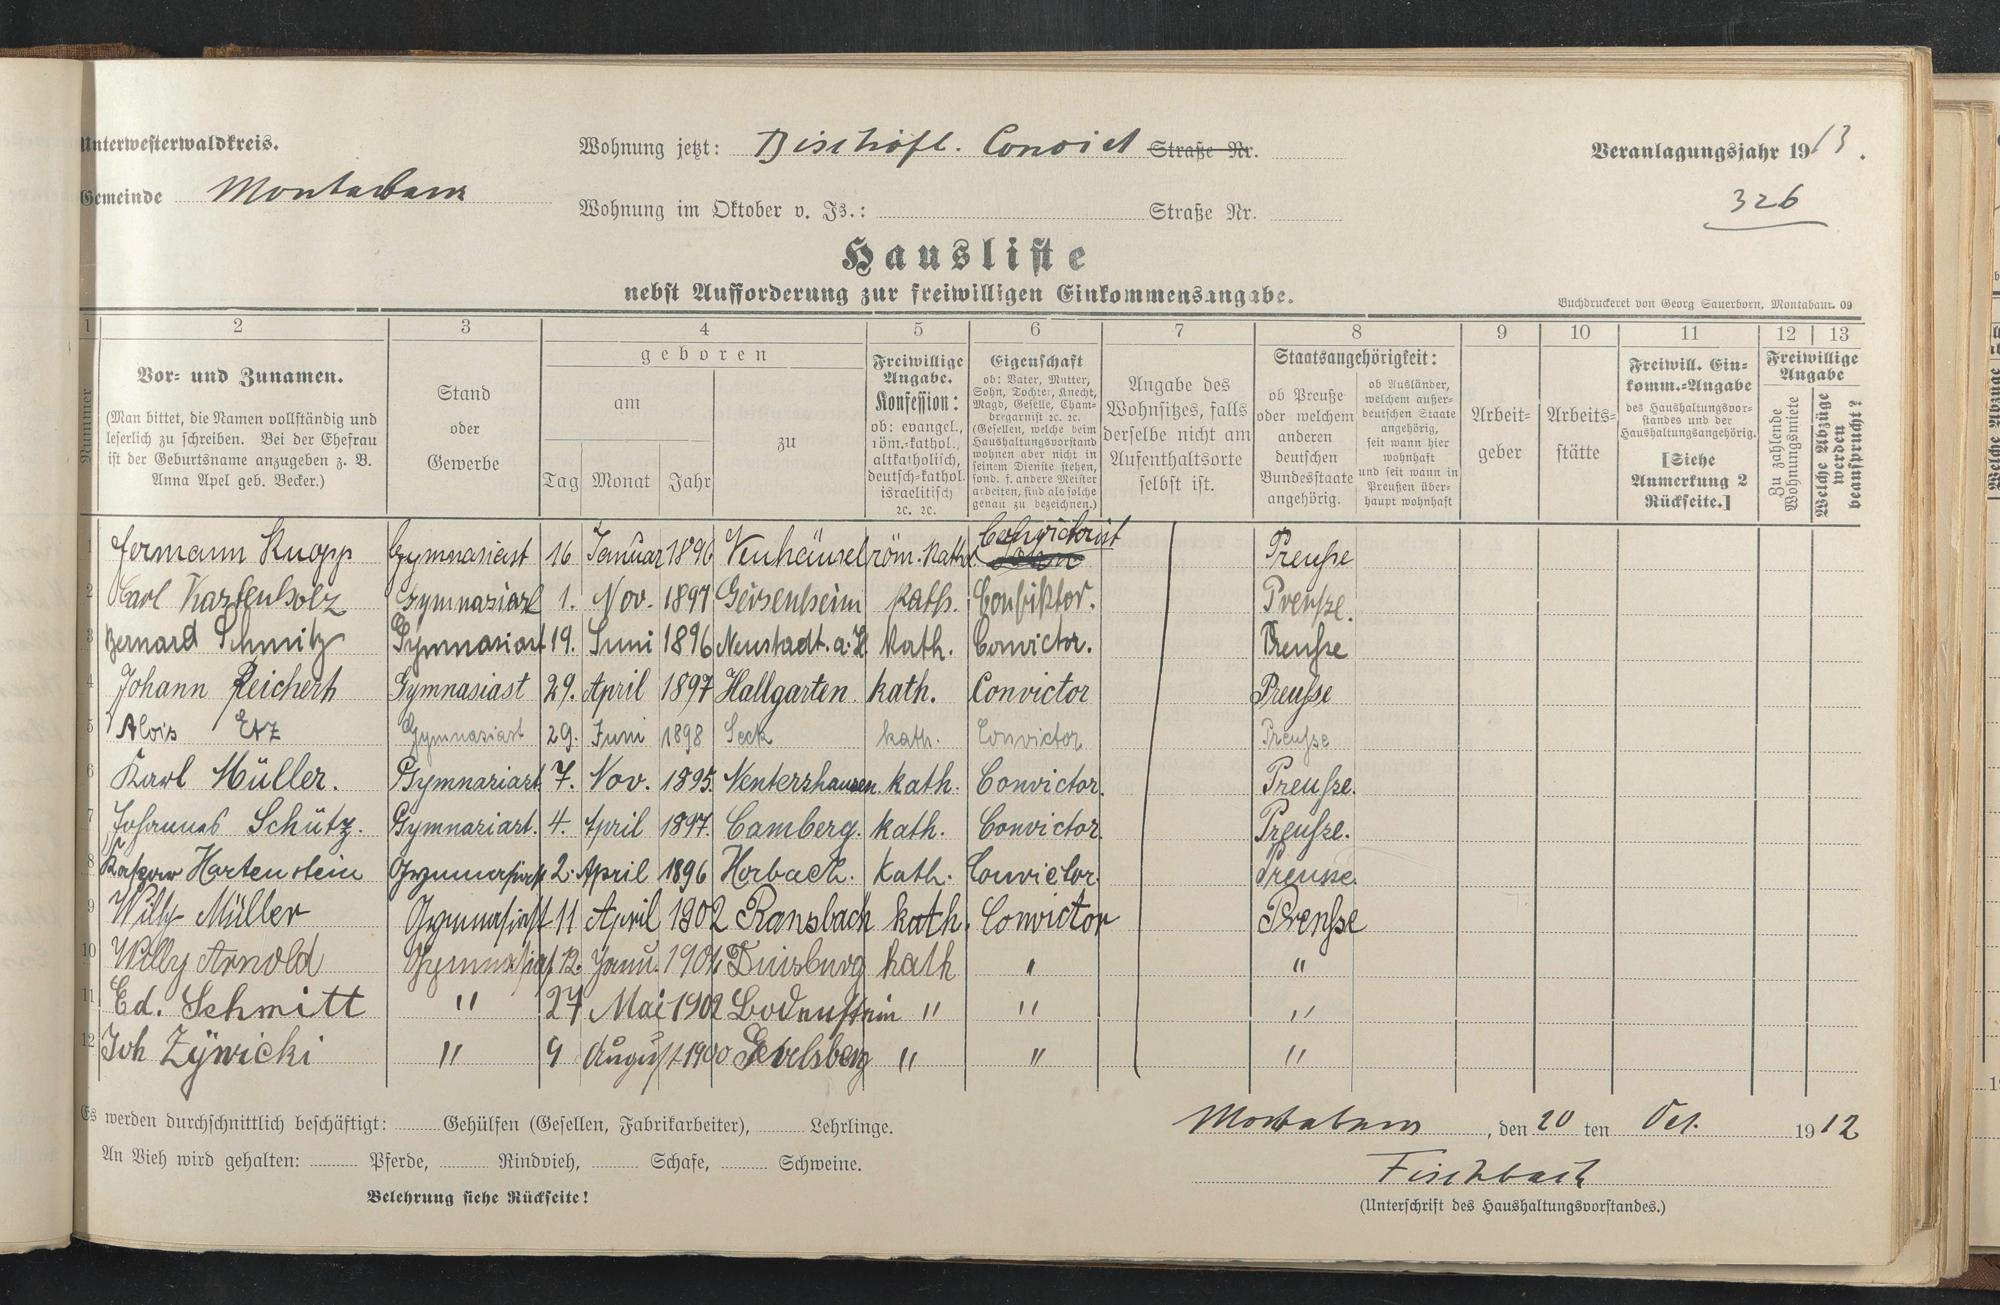 Unterwesterwaldkreis.
Wohnung jetzt: Bischöfl. Convict Straße Nr.
Veranlagungsjahr 1913.
Gemeinde Montabaur
326
Wohnung im Oktober v. Js.: Straße Nr.
Hausliste
nebst Aufforderung zur freiwilligen Einkommensangabe.
Buchdruckerei von Georg Sauerborn, Montabaur. 09
1 2 3 4 5 6 7 8 9 10 11 12 13
Nummer
Vor- und Zunamen.
(Man bittet, die Namen vollständig und
leserlich zu schreiben. Bei der Ehefrau
ist der Geburtsname anzugeben z. B.
Anna Apel geb. Becker.)
Stand
oder
Gewerbe
geboren
am
Tag Monat Jahr
zu
Freiwillige
Angabe.
Konfession:
ob: evangel.,
röm.-kathol.,
altkatholisch,
deutsch-kathol.
israelitisch
2c. 2c.
Eigenschaft
ob: Vater, Mutter,
Sohn, Tochter, Knecht,
Magd, Geselle, Cham-
bregarnist 2c. 2c.
(Gesellen, welche beim
Haushaltungsvorstand
wohnen aber nicht in
seinem Dienste stehen,
sond. f. andere Meister
arbeiten, sind als solche
genau zu bezeichnen.)
Angabe des
Wohnsitzes, falls
derselbe nicht am
Aufenthaltsorte
selbst ist.
Staatsangehörigkeit:
ob Preuße
oder welchem
anderen
deutschen
Bundesstaate
angehörig.
ob Ausländer,
welchem außer-
deutschen Staate
angehörig,
seit wann hier
wohnhaft
und seit wann in
Preußen über-
haupt wohnhaft
Arbeit-
geber
Arbeits-
stätte
Freiwill. Ein-
komm.-Angabe
des Haushaltungsvor-
standes und der
Haushaltungsangehörig.
[Siehe
Anmerkung 2
Rückseite.]
Freiwillige
Angabe
Zu zahlende
Wohnungsmiete
Welche Abzüge
werden
beansprucht?
1 Hermann Knopp Gymnasiast 16 Januar 1896 Neuhäusel röm. kath. Convictorist Preuße
2 Karl Kastenholz Gymnasiast 1. Nov. 1897 Geisenheim kath. Confiktor. Preuße.
3 Bernard Schmitz Gymnasiast 19. Juni 1896 Neustadt. a. H kath. Convictor. Preuße
4 Johann Reichert Gymnasiast 29. April 1897 Hallgarten kath. Convictor Preuße
5 Alois Etz Gymnasiast 29. Juni 1898 Seck kath. Convictor Preuße
6 Karl Müller. Gymnasiast 7. Nov. 1895. Nentershausen kath. Convictor. Preuße.
7 Johannes Schütz. Gymnasiast. 4. April 1897. Camberg. kath. Convictor Preuße.
8 Kaspar Hartenstein Gymnasiast 2. April 1896 Horbach. Kath. Convictor. Preusse.
9 Willy Müller Gymnasiast 11 April 1902 Ransbach kath. Convictor Preuße
10 Willy Arnold Gymnasiast 12. Janu. Duisburg kath " "
11 Ed. Schmitt " 27 Mai 1902 " " "
12 Joh Zÿwicki " 9 August 1900 Gevelsberg " " "
Es werden durchschnittlich beschäftigt: Gehülfen (Gesellen, Fabrikarbeiter), Lehrlinge.
An Vieh wird gehalten: Pferde, Rindvieh, Schafe, Schweine.
Belehrung siehe Rückseite!
Montabaur, den 20 ten Oct. 1912
Fischbach
(Unterschrift des Haushaltungsvorstandes.)